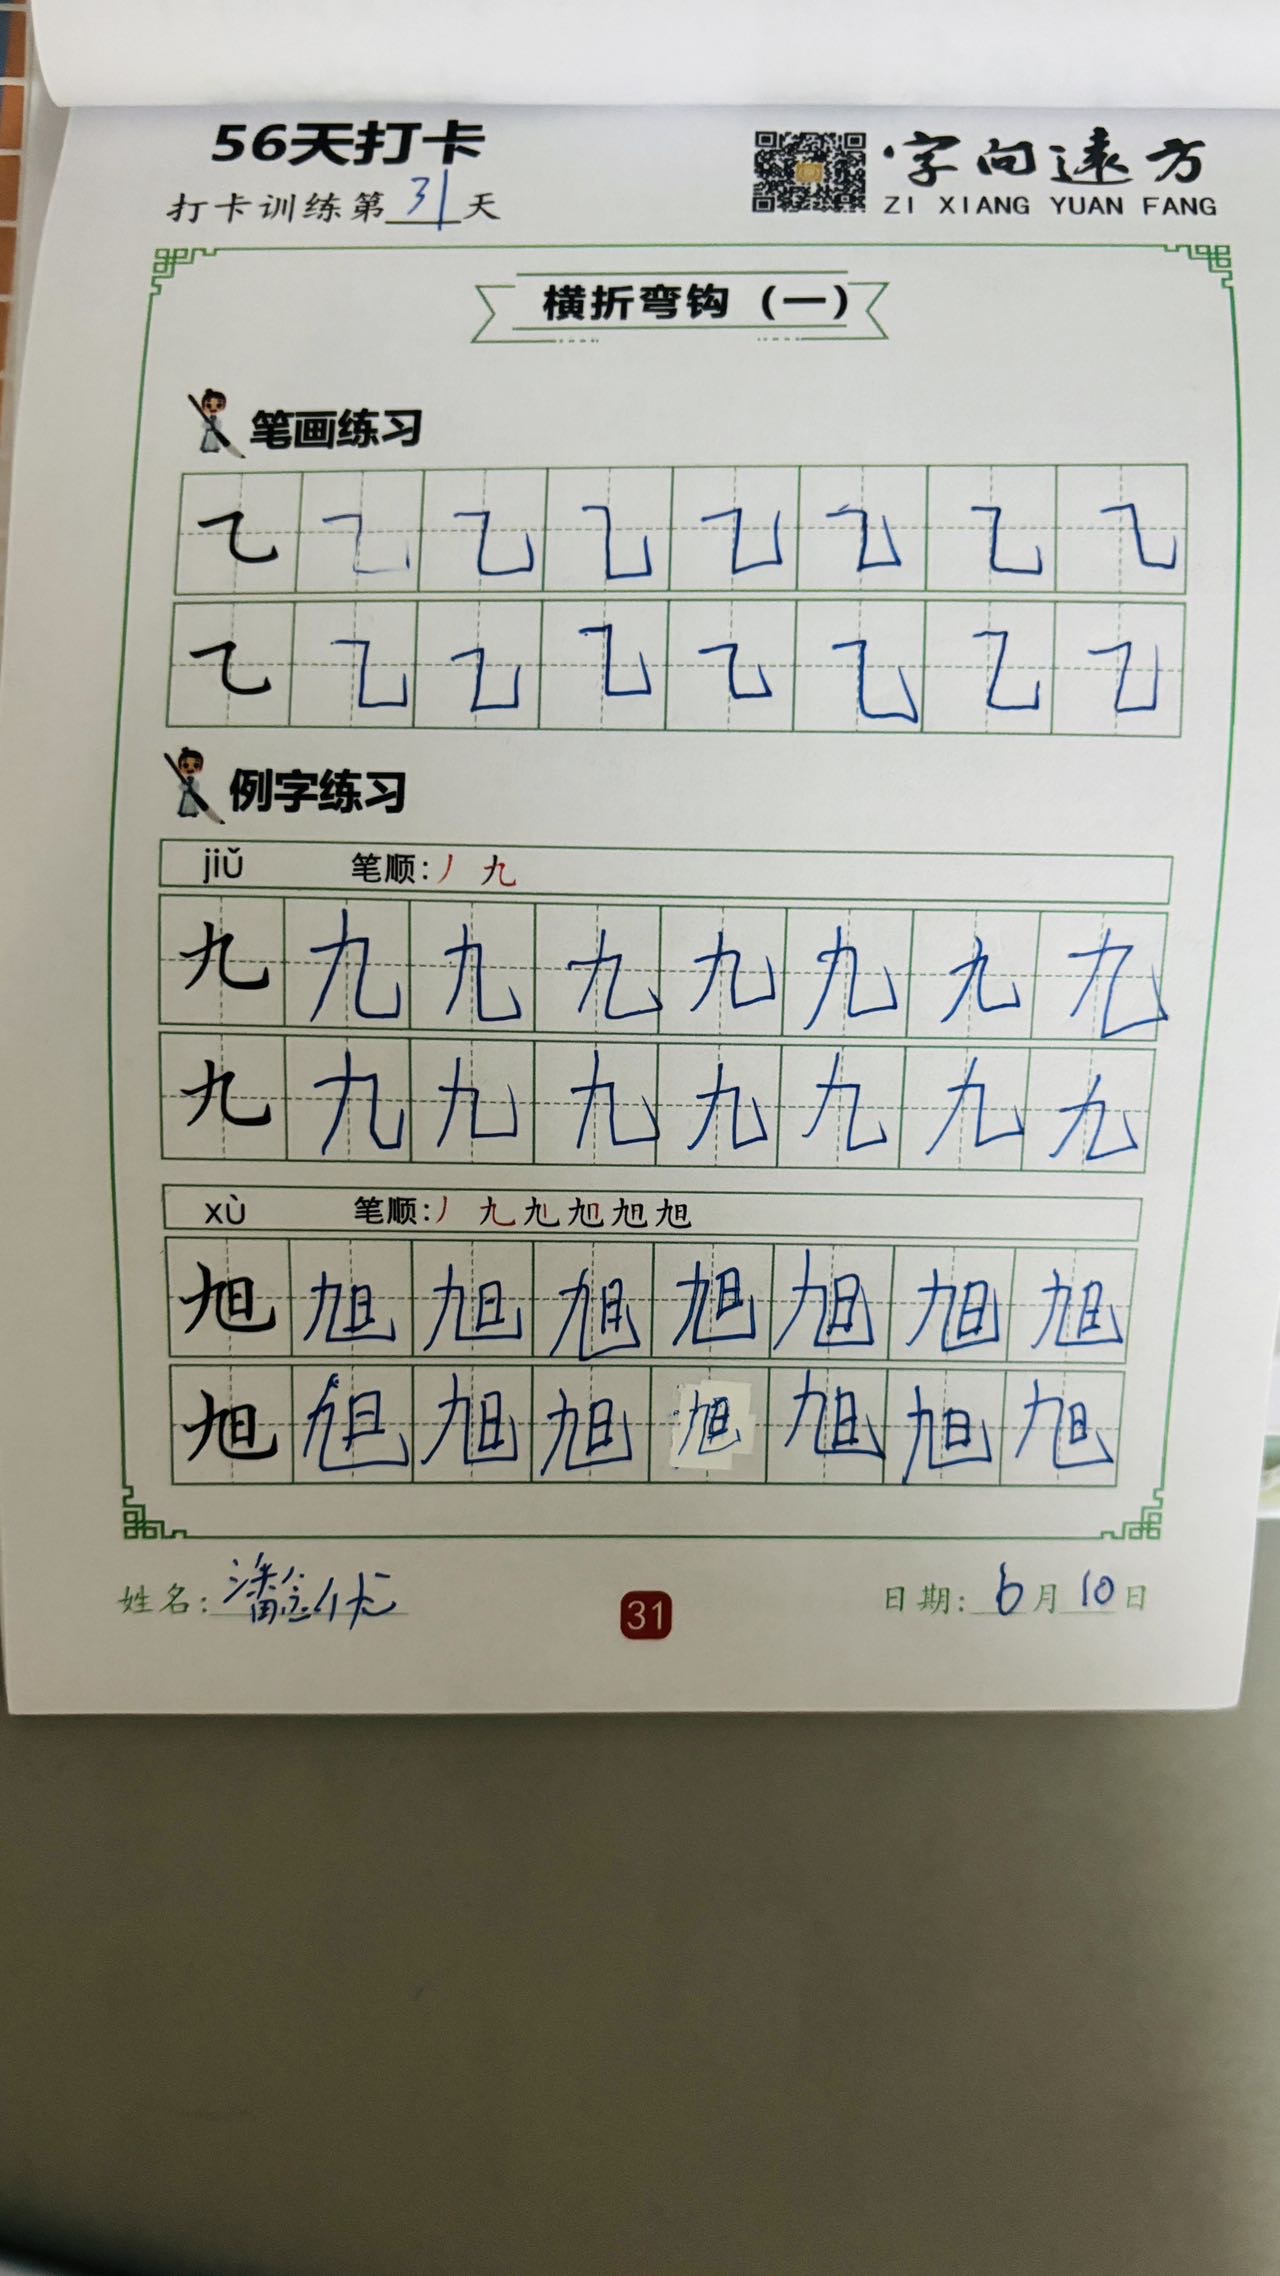 56天打卡
字向远方
打卡训练第31天
ZI XIANG YUAN FANG
横折弯钩（一）
笔画练习
㇈ ㇈ ㇈ ㇈ ㇈ ㇈ ㇈ ㇈
㇈ ㇈ ㇈ ㇈ ㇈ ㇈ ㇈ ㇈
例字练习
jiǔ 笔顺：丿 九
九 九 九 九 九 九 九 九
九 九 九 九 九 九 九 九
xù 笔顺：丿 九 旭 旭 旭 旭
旭 旭 旭 旭 旭 旭 旭 旭
旭 旭 旭 旭 旭 旭 旭 旭
姓名：潘
31
日期：6月10日